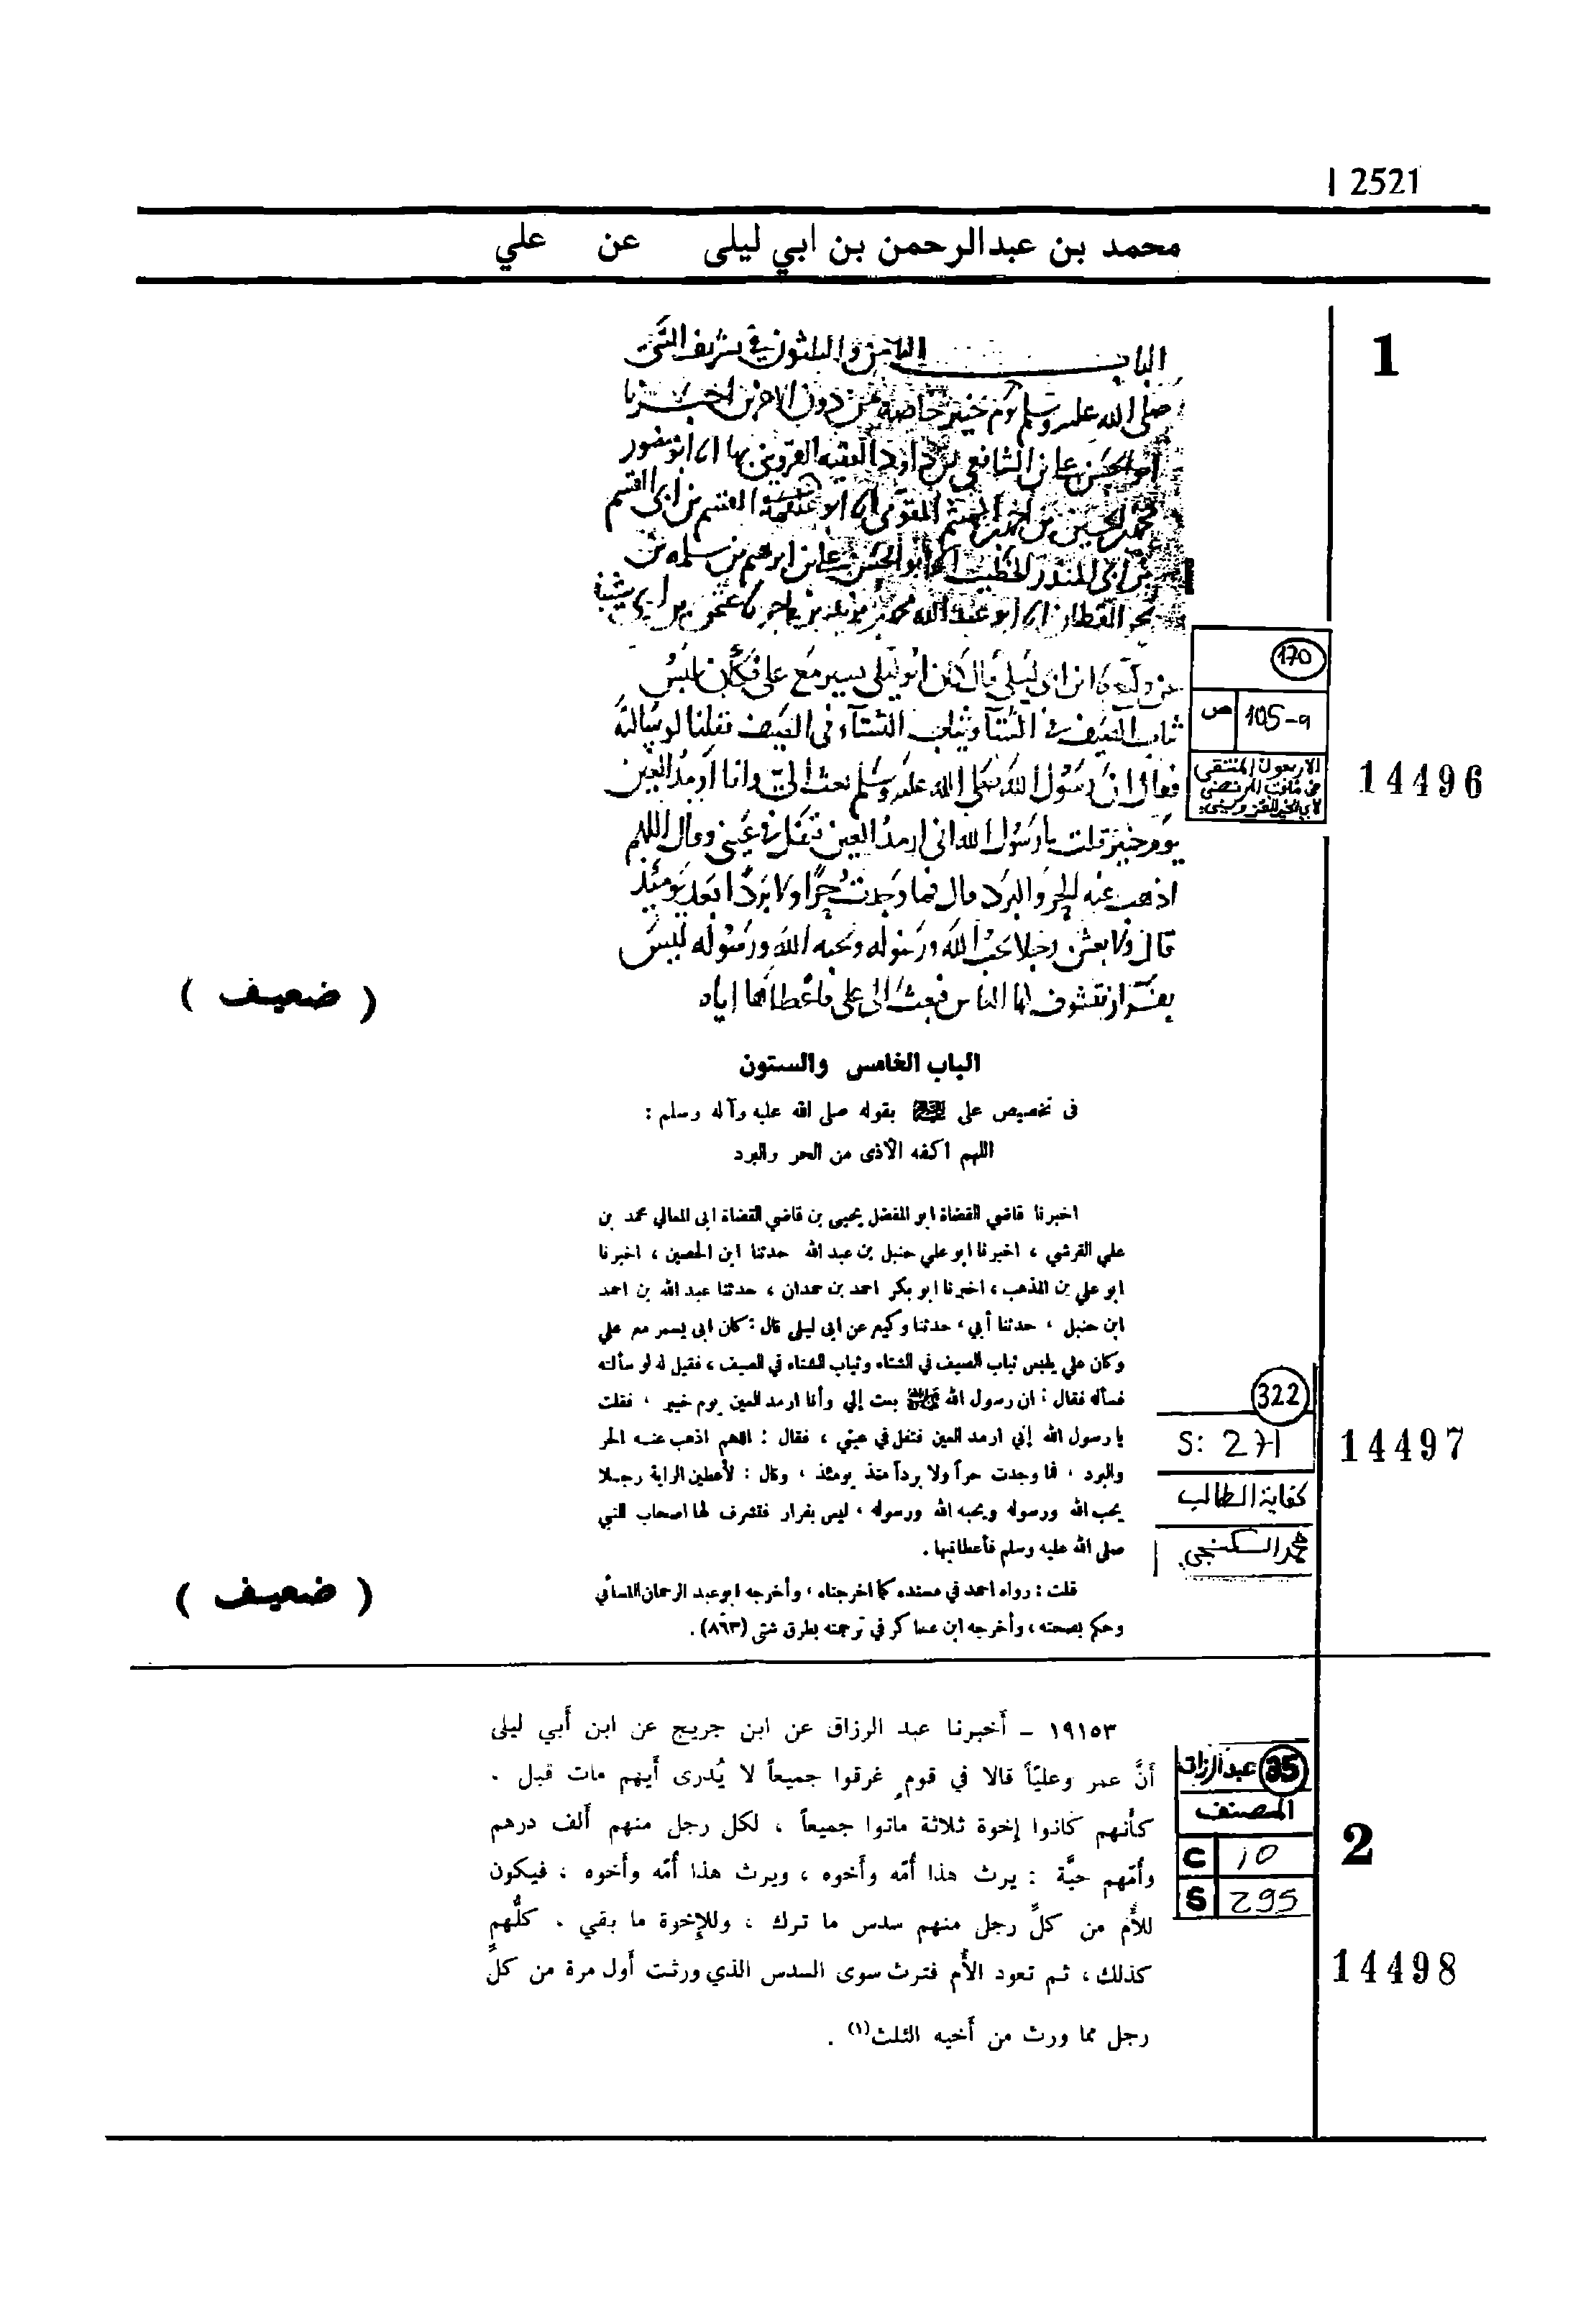 I 2521
محمد بن عبدالرحمن بن ابي ليلى عن علي
1
الباب الثامن والثلثون في تشريف النبي
صلى الله عليه وسلم يوم خيبر خاصة من دون الاخرين اخبرنا
الشافعي بن داود الفقيه القزويني بها ابو منصور
محمد بن الحسين بن احمد بن الهيثم المقومي القسم بن ابي القسم
بن ابي المنذر الخطيب ابو الحسن علي بن ابرهيم بن سلمه بن
بحر القطان ابو عبد الله محمد بن يزيد بن ماجه عثمن بن ابي شيبة
ابن ابي ليلى قال كان ابو ليلى يسير مع علي فكان يلبس
ثياب الصيف في الشتآ وثياب الشتآء في الصيف فقلنا لو سالته
فقال ان رسول الله صلى الله عليه وسلم بعث الي وانا ارمد العين
يوم خيبر قلت يا رسول الله اني ارمد العين فتفل في عيني وقال اللهم
اذهب عنه الحر والبرد قال فما وجدت حرا ولا بردا بعد يومئذ
قال ولابعثن رجلا يحب الله ورسوله ويحبه الله ورسوله ليس
بفرار فتشوف لها الناس فبعث الى علي فاعطاها اياه
( ضعيف )
170
ص 105-9
الاربعون المنتقى
من مناقب المرتضى
لابي الخير القزويني
14496
الباب الخامس والستون
في تخصيص علي بقوله صلى الله عليه وآله وسلم :
اللهم اكفه الأذى من الحر والبرد
اخبرنا قاضي القضاة ابو المفضل يحيى بن قاضي القضاة ابى المعالي محمد بن
علي القرشي ، اخبرنا ابو علي حنبل بن عبد الله حدثنا ابن الحصين ، اخبرنا
ابو علي بن المذهب ، اخبرنا ابو بكر احمد بن حمدان ، حدثنا عبد الله بن احمد
ابن حنبل ، حدثنا أبي ، حدثنا وكيع عن ابى ليلى قال : كان ابى يسمر مع علي
وكان علي يلبس ثياب الصيف في الشتاء وثياب الشتاء في الصيف ، فقيل له لو سألته
فسأله فقال : ان رسول الله ﷺ بعث إلي وأنا ارمد العين يوم خيبر ، فقلت
يا رسول الله إني ارمد العين فتفل في عيني ، فقال : اللهم اذهب عنه الحر
والبرد ، فما وجدت حراً ولا برداً منذ يومئذ ، وقال : لأعطين الراية رجلا
يحب الله ورسوله ويحبه الله ورسوله ، ليس بفرار فتشرف لها اصحاب النبي
صلى الله عليه وسلم فأعطانيها .
قلت : رواه احمد في مسنده كما اخرجناه ، وأخرجه ابو عبد الرحمان النسائي
وحكم بصحته ، وأخرجه ابن عساكر في ترجمته بطرق شتى (٨٦٣) .
( ضعيف )
322
S: 271
كفاية الطالب
محمد الكنجي
14497
١٩١٥٣ – أخبرنا عبد الرزاق عن ابن جريج عن ابن أبي ليلى
أنَّ عمر وعليّاً قالا في قوم غرقوا جميعاً لا يُدرى أيهم مات قبل .
كأنهم كانوا إخوة ثلاثة ماتوا جميعاً ، لكل رجل منهم ألف درهم
وأمّهم حيَّة : يرث هذا أمّه وأخوه ، ويرث هذا أمّه وأخوه ، فيكون
للأم من كلّ رجل منهم سدس ما ترك ، وللإخوة ما بقي . كلّهم
كذلك ، ثم تعود الأم فترث سوى السدس الذي ورثت أول مرة من كلّ
رجل مما ورث من أخيه الثلث(١) .
35 عبدالرزاق
المصنف
C 10
S 295
2
14498